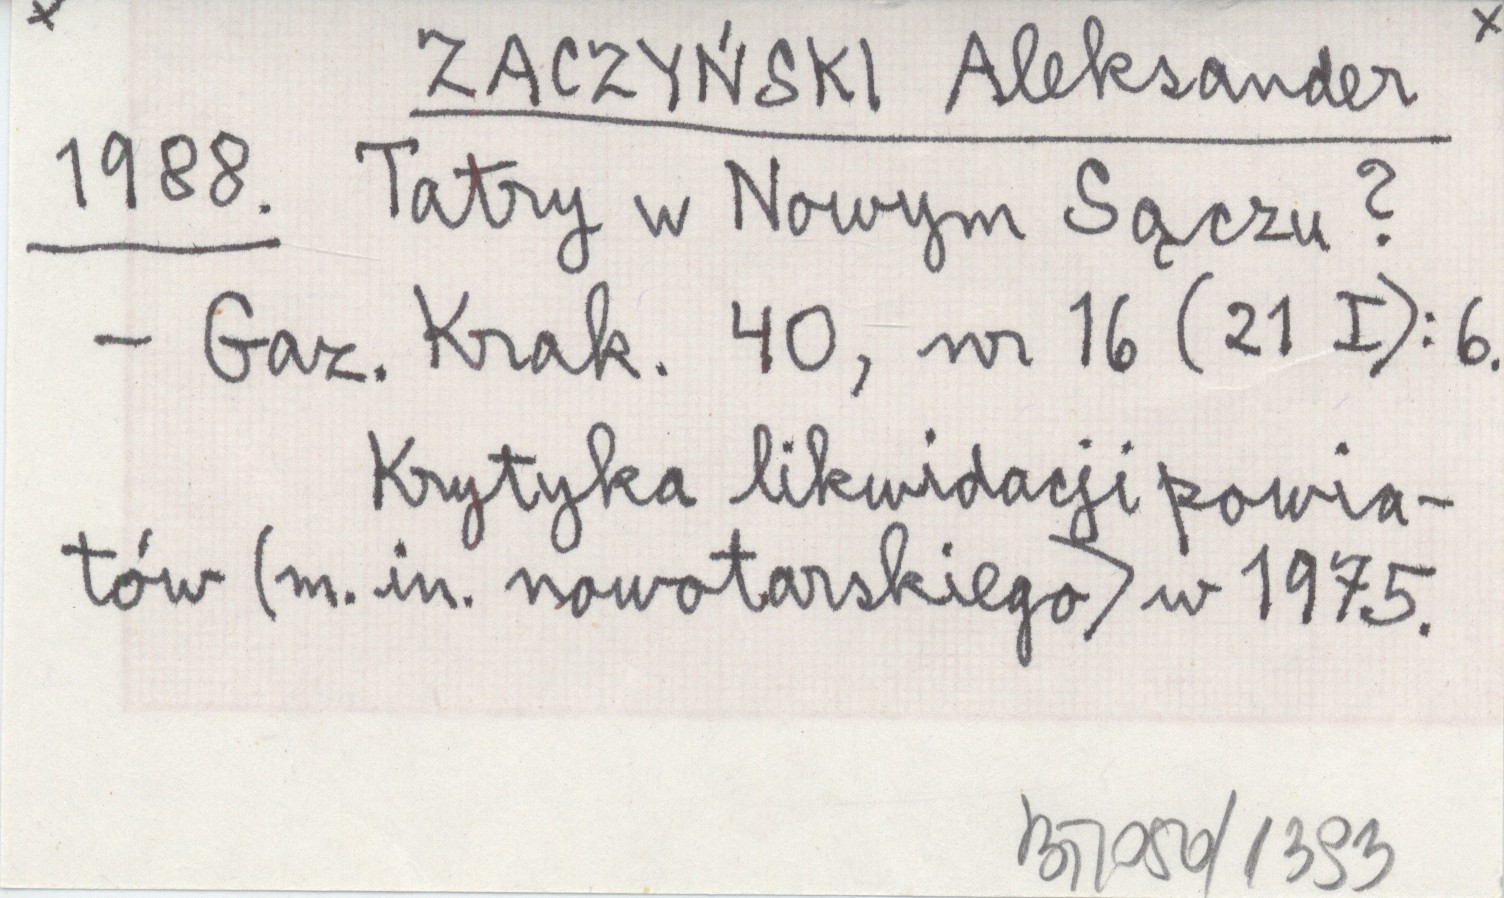 x x
ZACZYŃSKI Aleksander
1988. Tatry w Nowym Sączu?
- Gaz. Krak. 40, nr 16 (21 I): 6.
Krytyka likwidacji powia-
tów (m. in. nowotarskiego) w 1975.
/1393